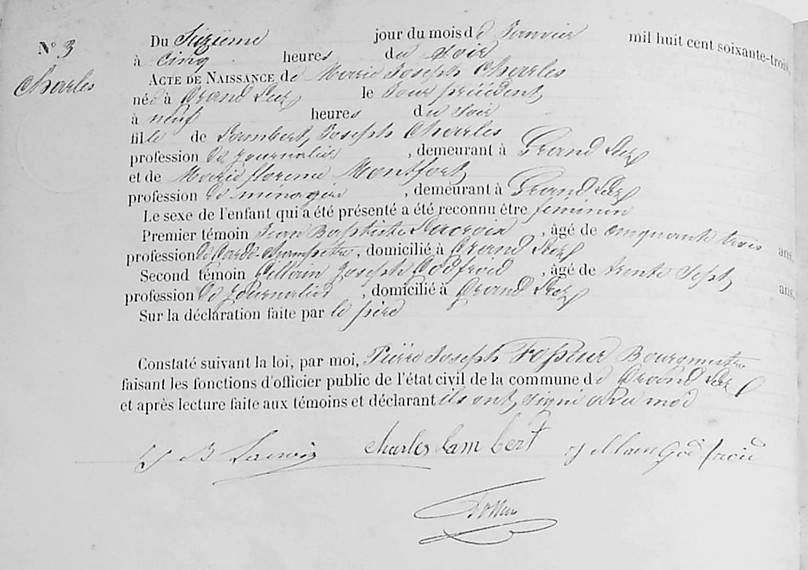 N° 3
Charles
Du Sizième jour du mois de Janvier mil huit cent soixante-trois,
à cinq heures du Soir
ACTE DE NAISSANCE de Marie Joseph Charles
née à Grand Leez le Jour précédent
à neuf heures du Soir
fille de Lambert, Joseph Charles
profession de journalier, demeurant à Grand Leez
et de Marie florence Montfort
profession de ménagère, demeurant à Grand Leez
Le sexe de l'enfant qui a été présenté a été reconnu être feminin
Premier témoin Jean Baptiste Lacroix, âgé de cinquante trois ans,
profession de Garde Champetre, domicilié à Grand Leez
Second témoin Joseph Godfroid, âgé de trente Sept ans,
profession de journalier, domicilié à Grand Leez
Sur la déclaration faite par le père
Constaté suivant la loi, par moi, Pierre Joseph Bourgmestre
faisant les fonctions d'officier public de l'état civil de la commune de Grand Leez
et après lecture faite aux témoins et déclarant ils ont signé avec moi
J B Lacroix charles lambert God froid